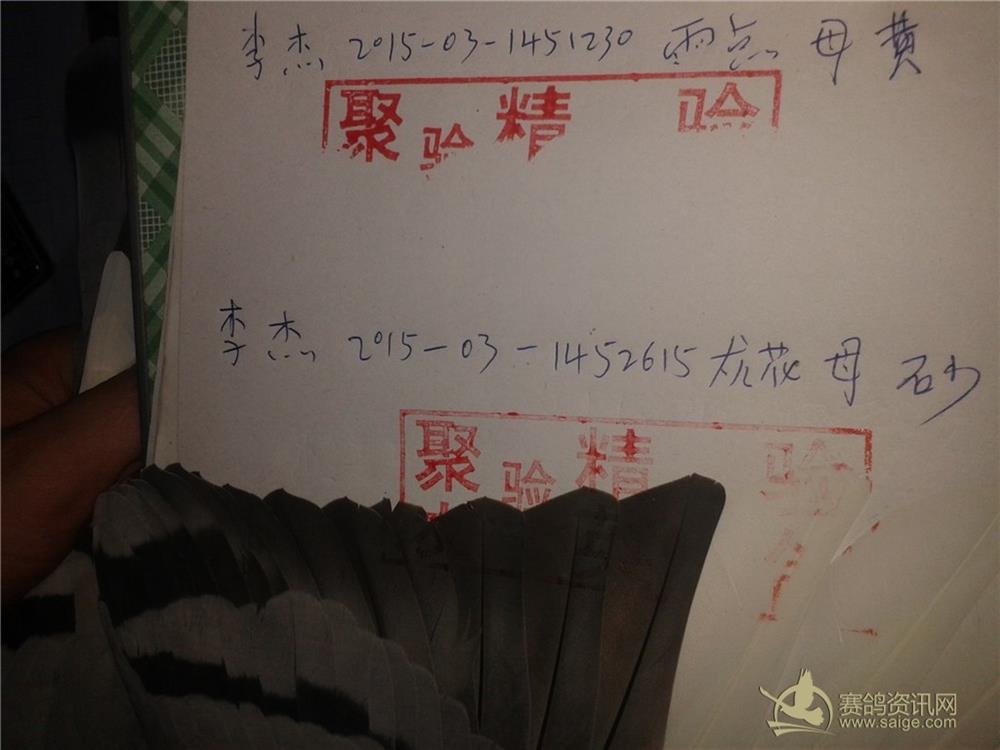 李杰 2015-03-1451230 雨点 母 黄
聚 验 精 验
李杰 2015-03-1452615 尤花 母 砂
聚 验 精 验
赛鸽资讯网
www.saige.com